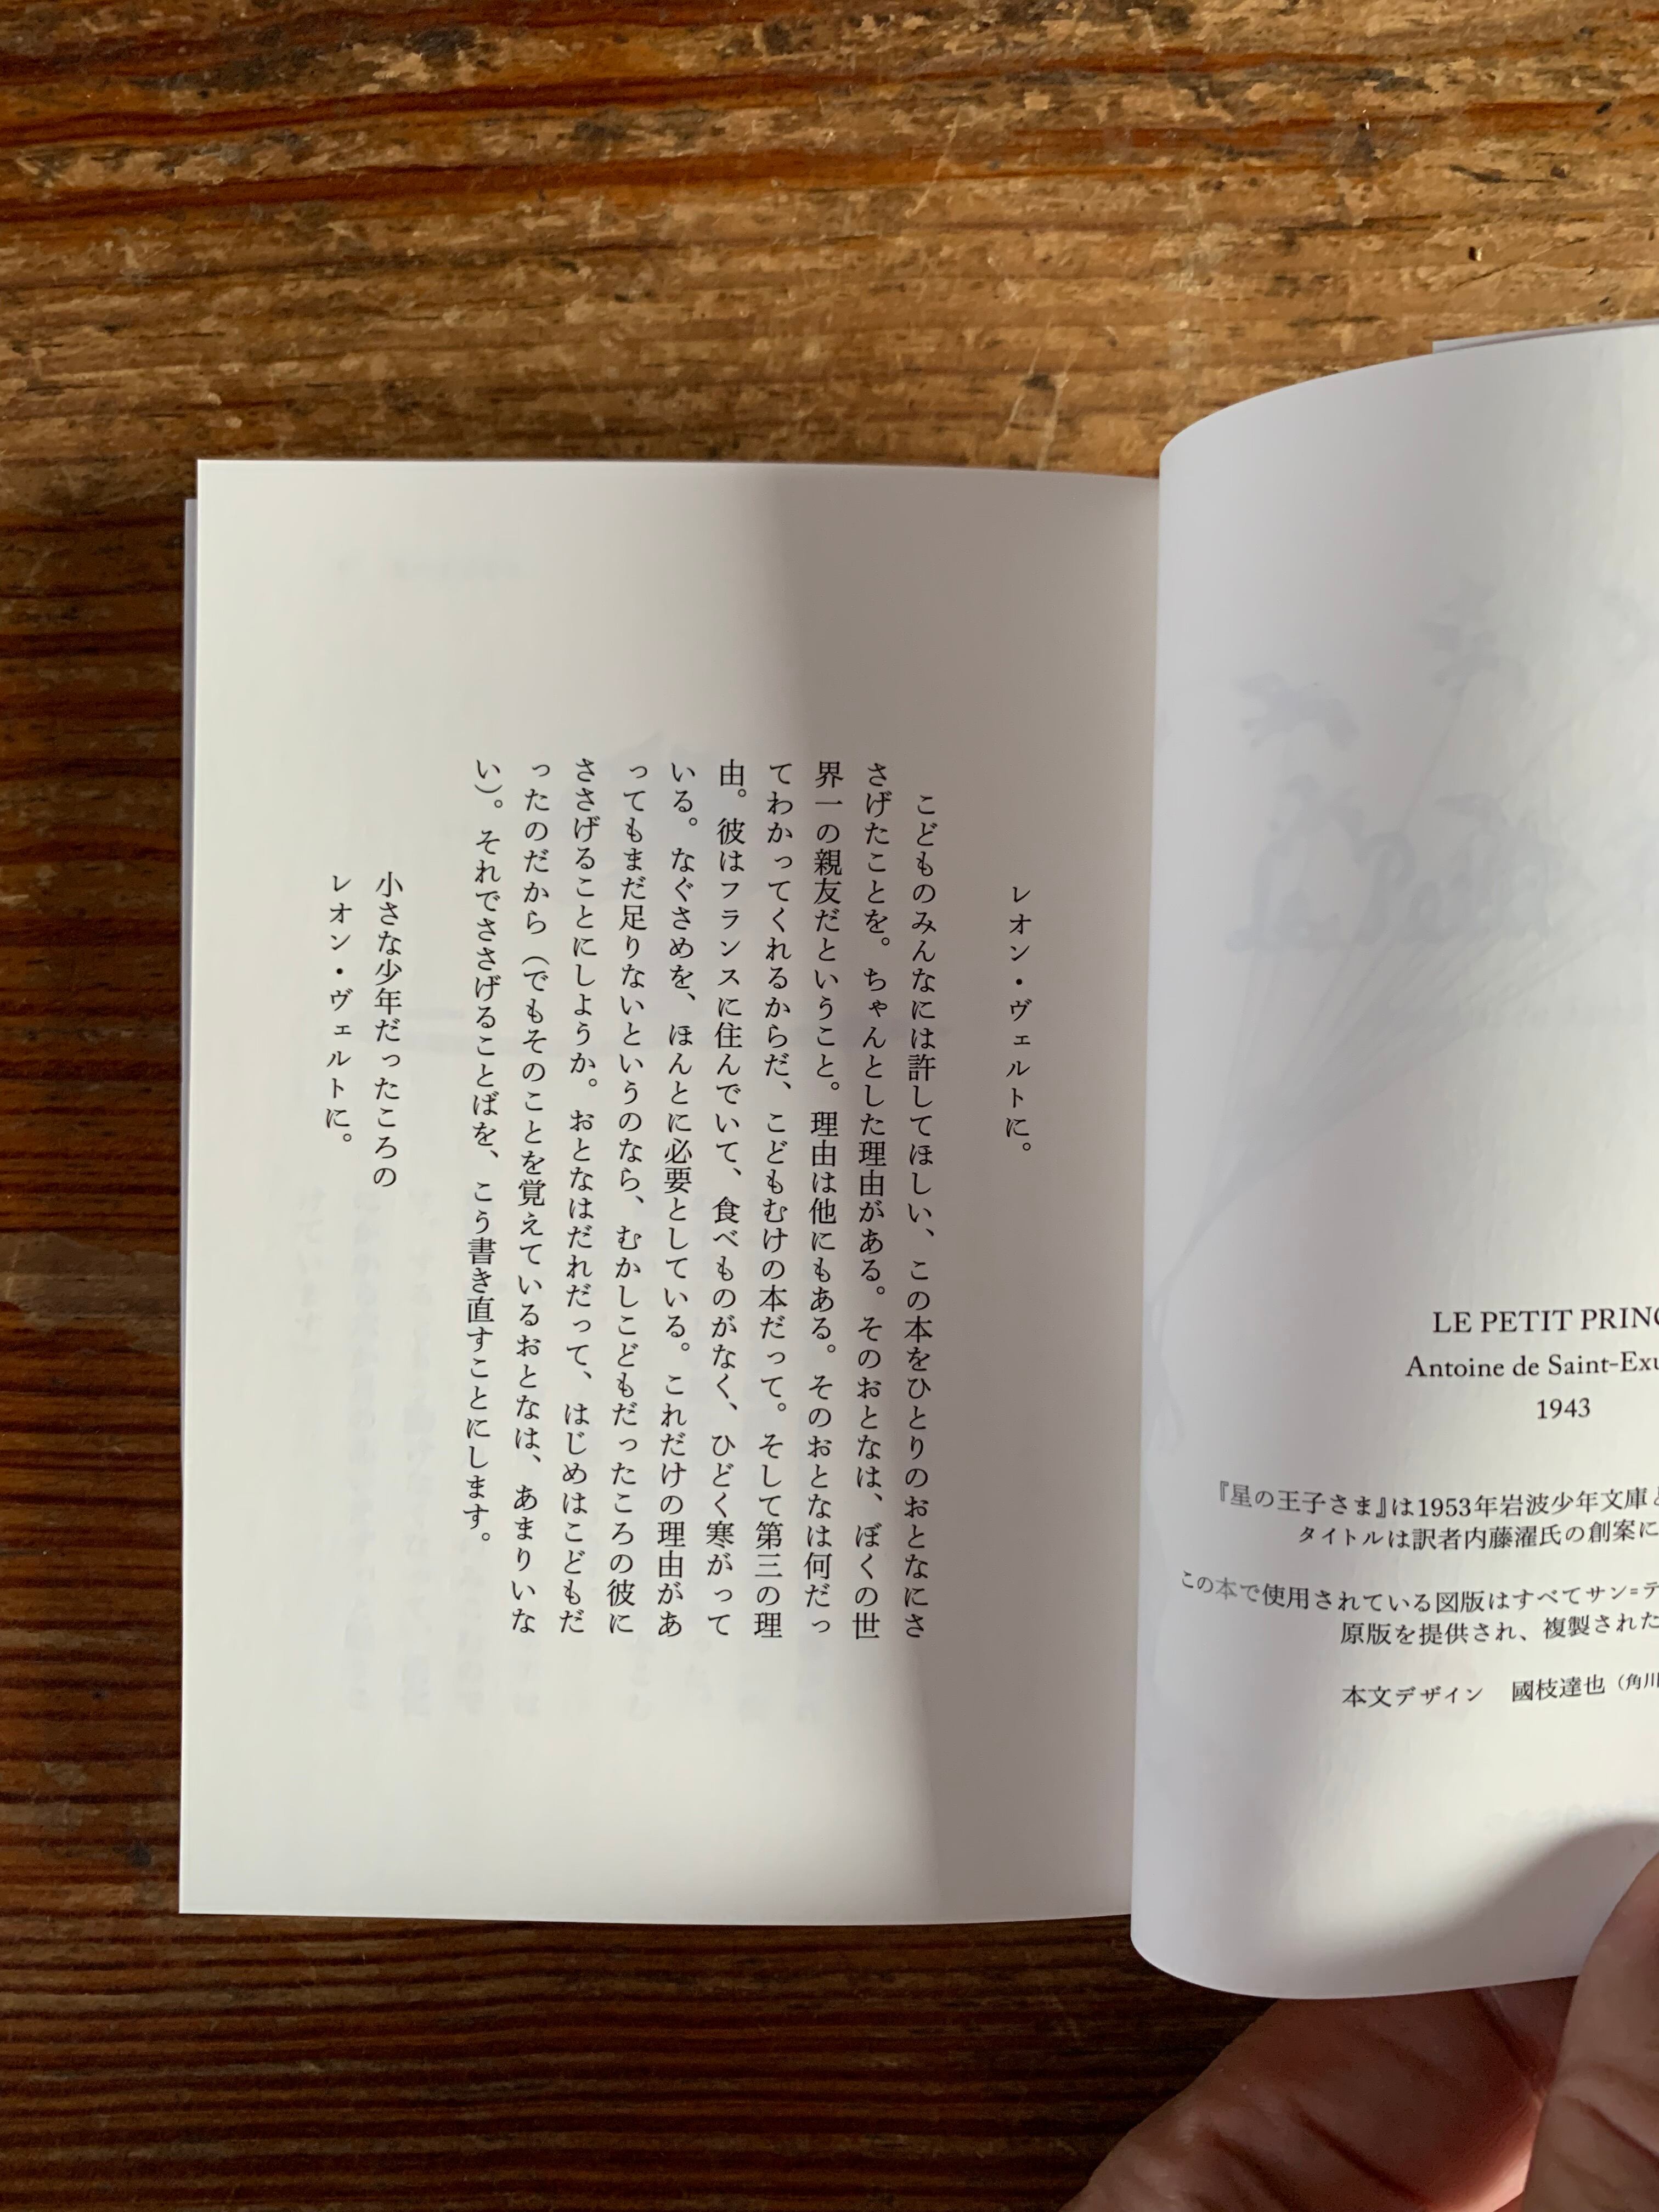 LE PETIT PRINC
Antoine de Saint-Exu
1943
『星の王子さま』は1953年岩波少年文庫
タイトルは訳者内藤濯氏の創案に
この本で使用されている図版はすべてサン=テ
原版を提供され、複製された
本文デザイン　國枝達也（角川
レオン・ヴェルトに。
こどものみんなには許してほしい、この本をひとりのおとなにさ
さげたことを。ちゃんとした理由がある。そのおとなは、ぼくの世
界一の親友だということ。理由は他にもある。そのおとなは何だっ
てわかってくれるからだ、こどもむけの本だって。そして第三の理
由。彼はフランスに住んでいて、食べものがなく、ひどく寒がって
いる。なぐさめを、ほんとに必要としている。これだけの理由があ
ってもまだ足りないというのなら、むかしこどもだったころの彼に
ささげることにしようか。おとなはだれだって、はじめはこどもだ
ったのだから（でもそのことを覚えているおとなは、あまりいな
い）。それでささげることばを、こう書き直すことにします。
小さな少年だったころの
レオン・ヴェルトに。